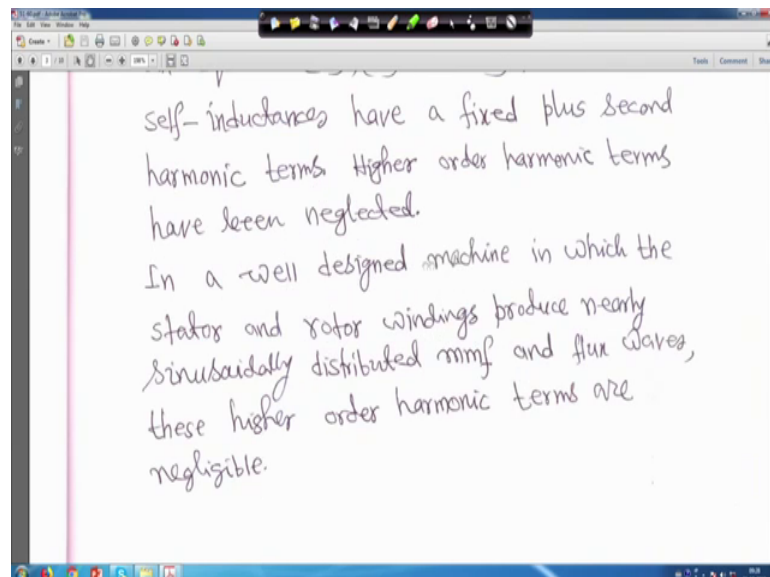 File Edit View Window Help
Create
Tools Comment
self-inductances have a fixed plus second
harmonic terms. Higher order harmonic terms
have been neglected.
In a well designed machine in which the
stator and rotor windings produce nearly
sinusoidally distributed mmf and flux waves,
these higher order harmonic terms are
negligible.